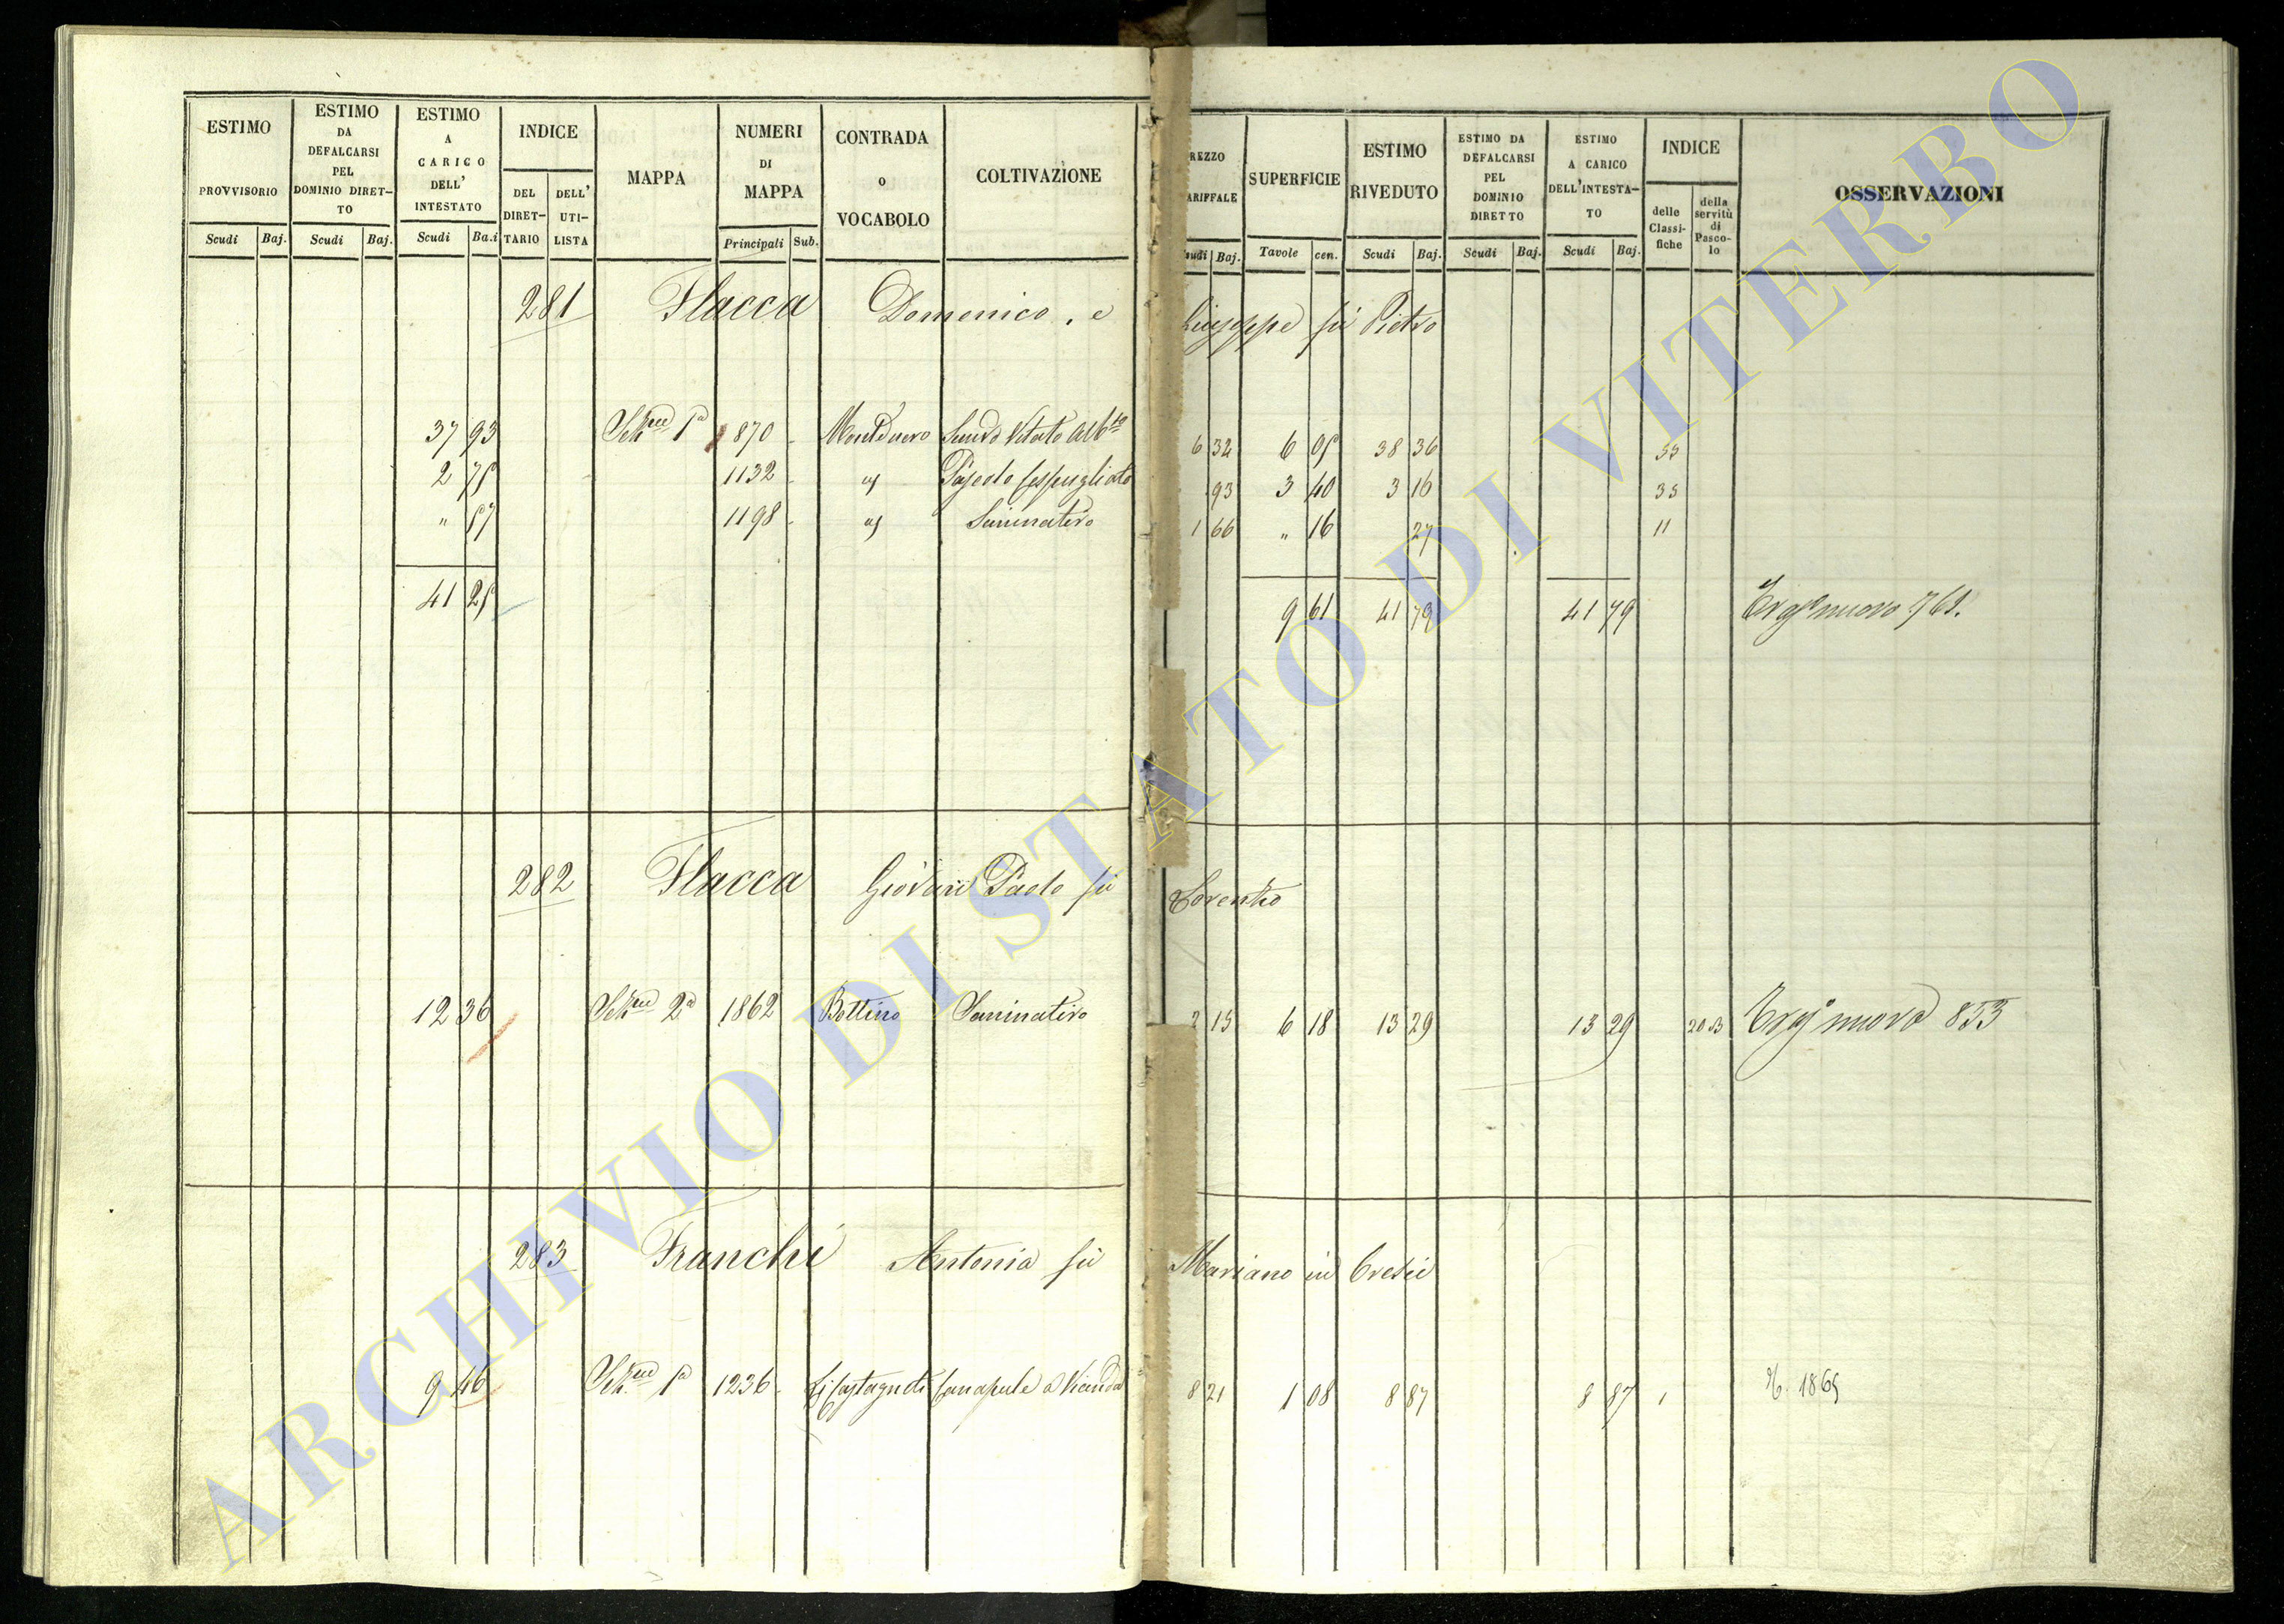 ESTIMO PROVVISORIO
Scudi Baj.
ESTIMO DA DEFALCARSI PEL DOMINIO DIRET- TO
Scudi Baj.
ESTIMO A CARICO DELL' INTESTATO
Scudi Ba.i
INDICE
DEL DIRET- TARIO
DELL' UTI- LISTA
MAPPA
NUMERI DI MAPPA
Principali Sub.
CONTRADA o VOCABOLO
COLTIVAZIONE
REZZO ARIFFALE
udi Baj.
SUPERFICIE
Tavole cen.
ESTIMO RIVEDUTO
Scudi Baj.
ESTIMO DA DEFALCARSI PEL DOMINIO DIRETTO
Scudi Baj.
ESTIMO A CARICO DELL'INTESTA- TO
Scudi Baj.
INDICE
delle Classi- fiche
della servitù di Pasco- lo
OSSERVAZIONI
281 Flacca Domenico, e Giuseppe fù Pietro
37 93 1ª 870 Seminvo Vitato Albto 6 32 6 05 38 36 33
2 75 1132 " Pascolo Cespugliato 93 3 40 3 16 33
" 57 1198 " Seminativo 1 66 " 16 27 11
41 25 9 61 41 79 41 79 nuovo 761.
282 Flacca Giovanni Paolo fù Lorenzo
12 36 2ª 1862 Bottino Seminativo 2 15 6 18 13 29 13 29 nuovo 853
283 Franchi Antonia fù Mariano in
9 46 1ª 1236 Li Castagneti Canapule a Vicenda 8 21 1 08 8 87 8 87 1 1869
ARCHIVIO DI STATO DI VITERBO